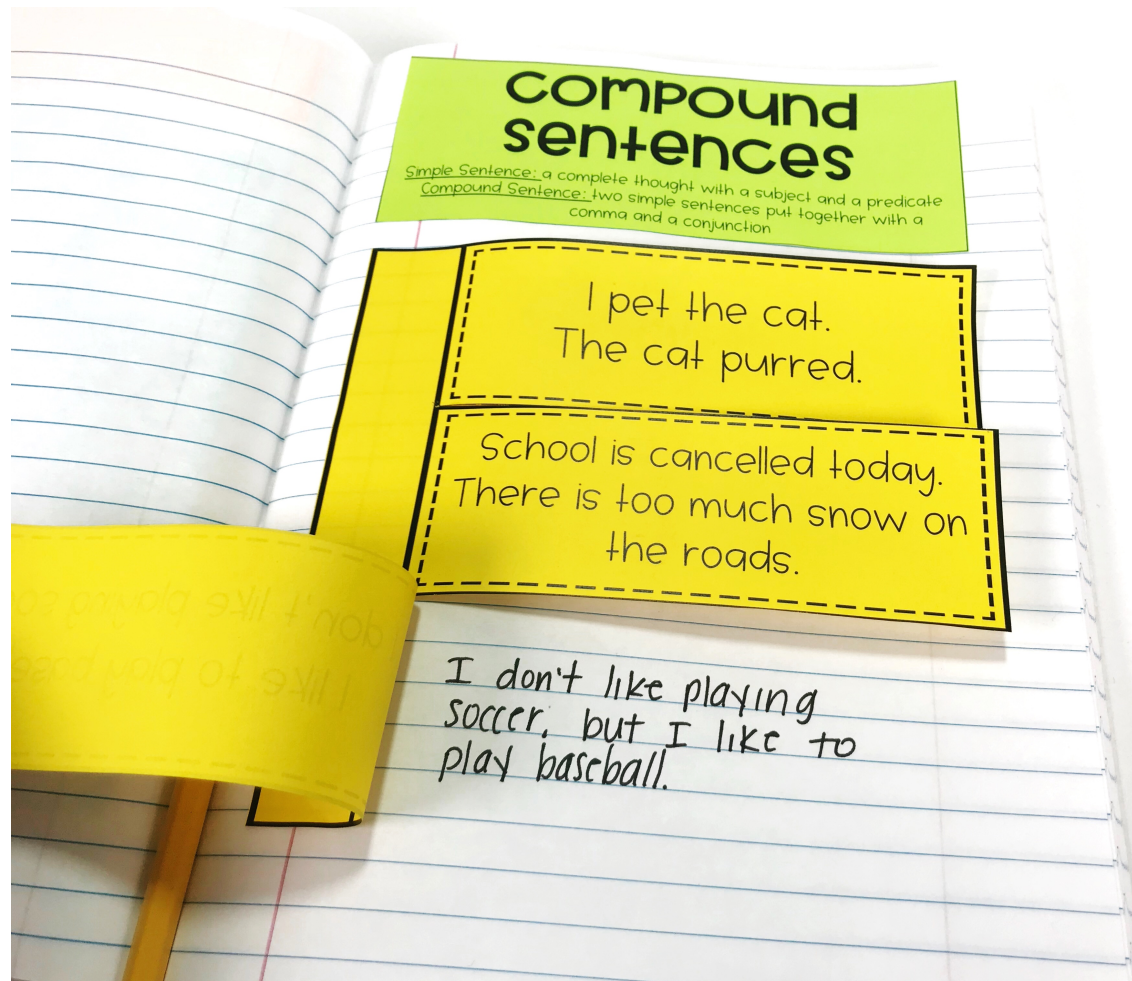 compound
sentences
Simple Sentence: a complete thought with a subject and a predicate
Compound Sentence: two simple sentences put together with a
comma and a conjunction
I pet the cat.
The cat purred.
School is cancelled today.
There is too much snow on
the roads.
I don't like playing
soccer, but I like to
play baseball.